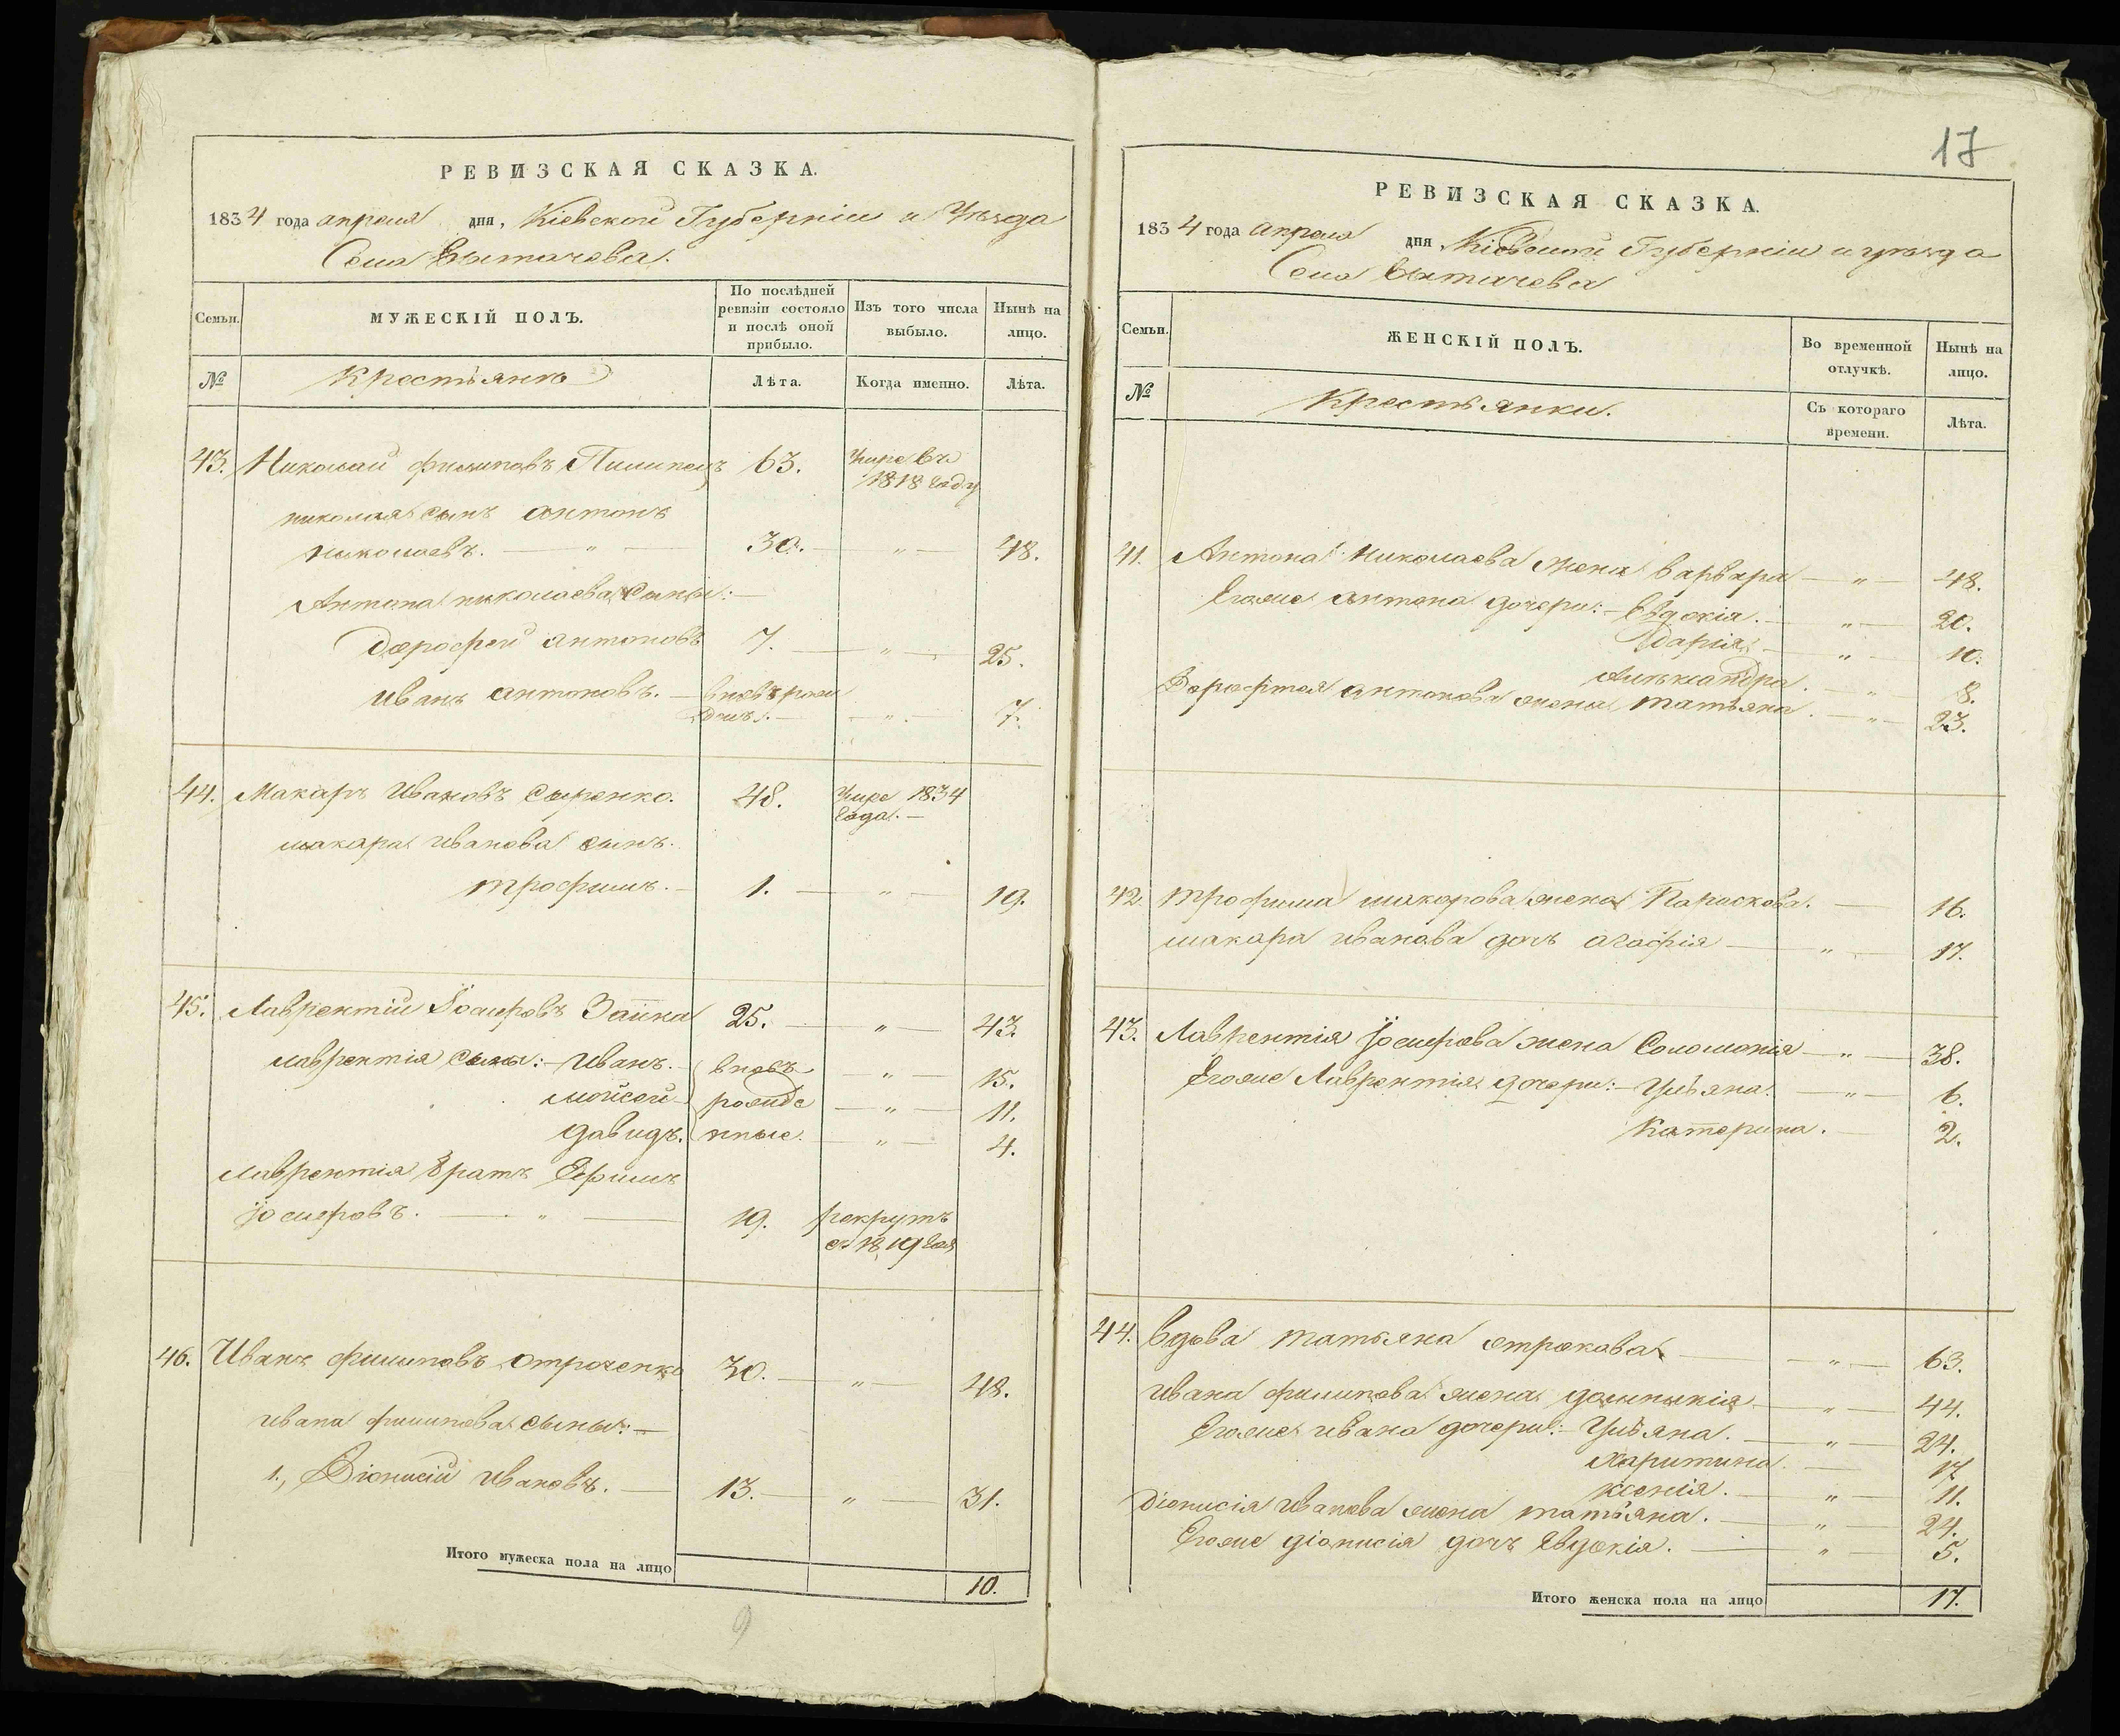 РЕВИЗСКАЯ СКАЗКА.
1834 года апреля дня, Кіевской Губерніи и Уѣзда
Села Вытачева.
Семьи.
МУЖЕСКІЙ ПОЛЪ.
По послѣдней ревизіи состояло и послѣ оной прибыло.
Изъ того числа выбыло.
Нынѣ на лицо.
№
Крестьянъ
Лѣта.
Когда именно.
Лѣта.
43. Николай филиповъ 63. Умре въ
1818 году
николая сынъ антонъ
николаевъ. — " — 30. — " — 48.
Антона николаева сыны: —
дорофей антоновъ 7. — " — 25.
иванъ антоновъ. — вновь рож
— " — 7.
44. Макаръ Ивановъ Сыренко. 48. Умре 1834
года. —
макара иванова сынъ.
трофимъ. — 1. — " — 19.
45. Лаврентій Іосифовъ Заика 25. — " — 43.
лаврентія сыны: — иванъ. — вновь — " — 15.
мойсей — рожде — " — 11.
давидъ. нные. — " — 4.
лаврентія братъ Ефимъ
Іосифовъ. — " — 19. рекрутъ
с 1819 года
46. Иванъ филиповъ отроченко 30. — " — 48.
ивана филипова сыны: —
1., Діонисій ивановъ. — 13. — " — 31.
Итого мужеска пола на лицо 10.
9
17
РЕВИЗСКАЯ СКАЗКА.
1834 года апреля дня, Кіевской Губерніи и уѣзда
Села Вытачева
Семьи.
ЖЕНСКІЙ ПОЛЪ.
Во временной отлучкѣ.
Нынѣ на лицо.
№
Крестьянки.
Съ котораго времени.
Лѣта.
41. Антона Николаева жена варвара — " — 48.
Егоже антона дочери: — Евдокія. — " — 20.
дарія. — " — 10.
александра. — " — 8.
Дорофтея антонова жена татьяна. — " — 23.
42. трофима макарова жена Параскева. — 16.
макара иванова дочь агафія — " — 17.
43. Лаврентія Іосифова жена Соломонія — " — 38.
Егоже Лаврентія дочери: — Ульяна. — " — 6.
Катерина. — 2.
44. вдова татьяна отрокова — " — 63.
ивана филипова жена домникія — " — 44.
Егоже ивана дочери: — Ульяна. — " — 24.
харитина. — 17
ксенія. — " — 11.
діонисія иванова жена татьяна. — " — 24.
Егоже діонисія дочь Евдокія. — " — 5.
Итого женска пола на лицо 17.